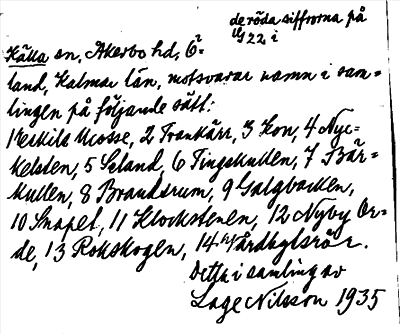 de röda siffrorna på
G 22 i
Källa sn, Åkerbo hd, Ö-
land, Kalmar län, motsvarar namn i sam-
lingen på följande sätt:
1 Mosse, 2 Trankärr, 3 Kon, 4 Nyc-
kelsten, 5 Seland, 6 Tingskullen, 7 Bär-
kullen, 8 Brandsrum, 9 Galgbacken,
10 Knapel, 11 Klockstenen, 12 Nyby Or-
de, 13 Rokskogen, 14
Detta i samling av
Lage Nilsson 1935